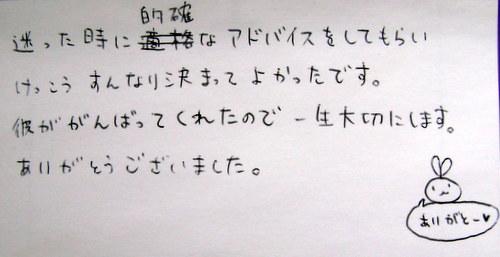 迷った時に的確なアドバイスをしてもらい
けっこう すんなり決まって よかったです。
彼ががんばってくれたので 一生大切にします。
ありがとうございました。
ありがとー♥